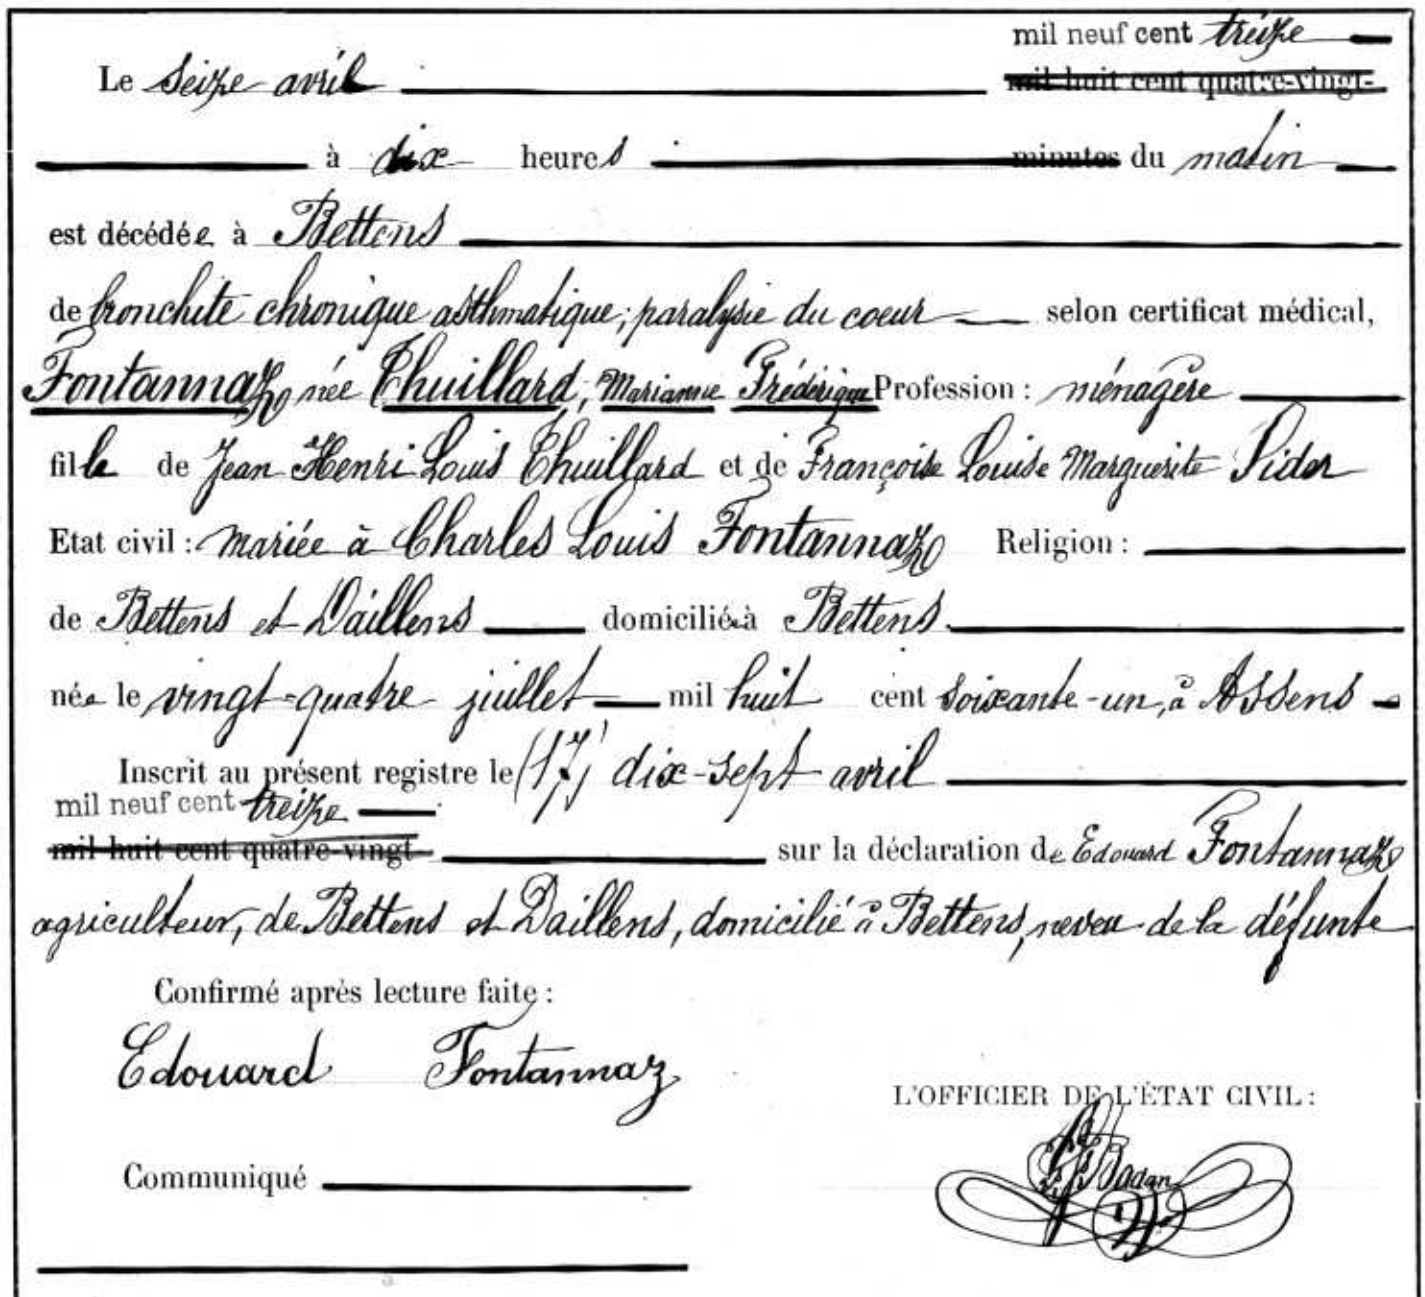 mil neuf cent treize
Le seize avril mil huit cent quatre-vingt-
à dix heures minutes du matin
est décédée à Bettens
de bronchite chronique asthmatique; paralysie du coeur selon certificat médical,
Fontannaz née Thuillard, Marianne Frédérique Profession : ménagère
fille de Jean Henri Louis Thuillard et de Françoise Louise Marguerite Pidor
Etat civil : mariée à Charles Louis Fontannaz Religion :
de Bettens et Daillens domiciliée à Bettens
née le vingt-quatre juillet mil huit cent soixante-un, à Assens
Inscrit au présent registre le (17) dix-sept avril
mil neuf cent treize
mil huit cent quatre-vingt- sur la déclaration de Edouard Fontannaz
agriculteur, de Bettens et Daillens, domicilié à Bettens, neveu de la défunte
Confirmé après lecture faite :
Edouard Fontannaz
L'OFFICIER DE L'ÉTAT CIVIL :
Badan
Communiqué